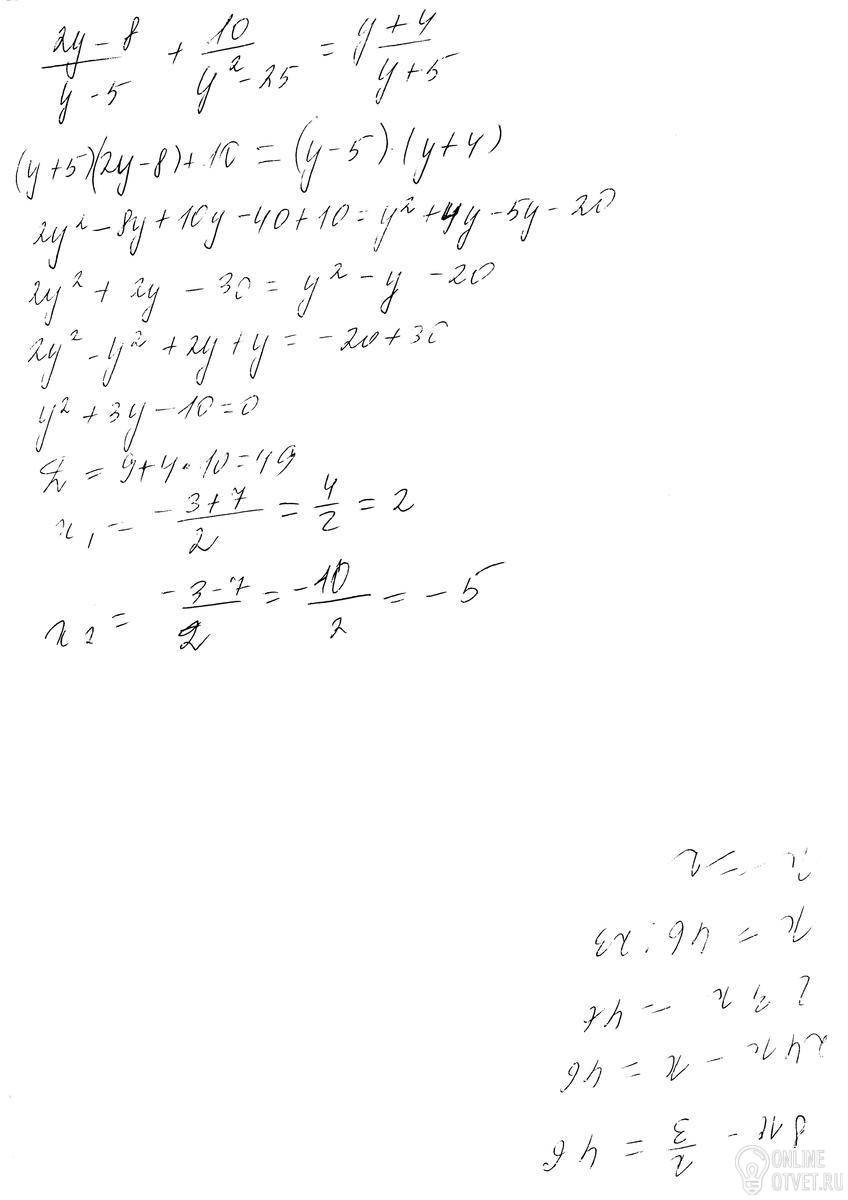 (2y-8)/(y-5) + 10/(y²-25) = (y+4)/(y+5)
(y+5)(2y-8)+10 = (y-5)·(y+4)
2y²-8y+10y-40+10=y²+4y-5y-20
2y²+2y-30=y²-y-20
2y²-y²+2y+y=-20+30
y²+3y-10=0
D=9+4·10=49
x₁=(-3+7)/2=4/2=2
x₂=(-3-7)/2=-10/2=-5
8x-x/3=46
24x-x=46
23x=46
x=46:23
x=2
ONLINE
OTVET.RU